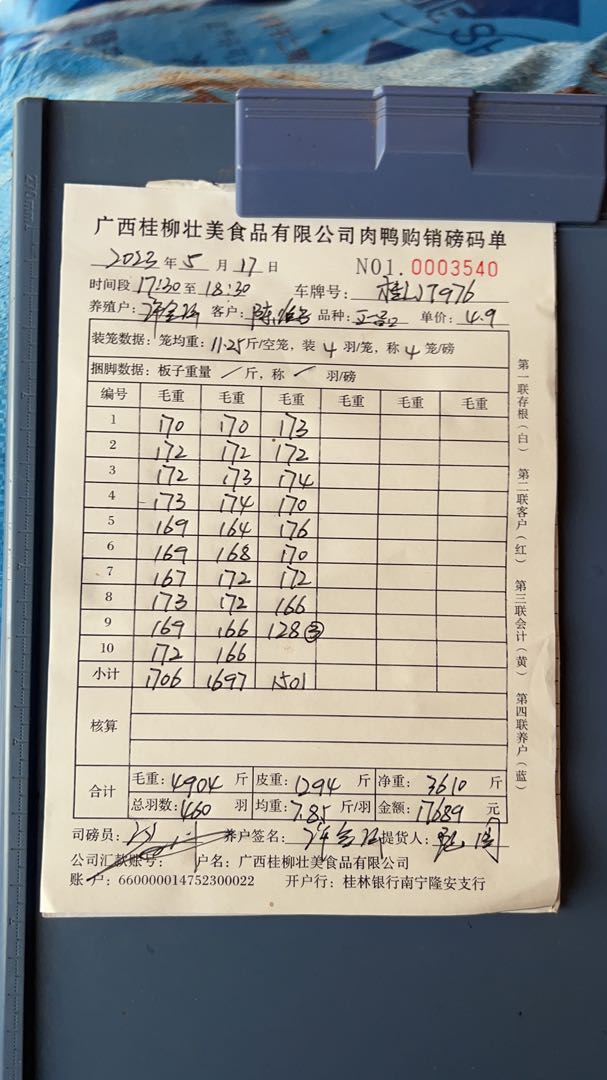 广西桂柳壮美食品有限公司肉鸭购销磅码单
2023年5月17日 NO1.0003540
时间段17:30至18:30 车牌号:桂LJT976
养殖户: 客户:陈 品种: 单价:4.9
装笼数据:笼均重:11.25斤/空笼,装4羽/笼,称4笼/磅
捆脚数据:板子重量/斤,称/羽/磅
编号 毛重 毛重 毛重 毛重 毛重 毛重
1 170 170 173
2 172 172 172
3 172 173 174
4 173 174 170
5 169 164 176
6 169 168 170
7 167 172 172
8 173 172 166
9 169 166 128③
10 172 166
小计 1706 1697 1501
核算
合计 毛重:4904斤 皮重:1294斤 净重:3610斤
总羽数:460羽 均重:7.85斤/羽 金额:17689元
司磅员: 养户签名: 提货人:
公司汇款账号: 户名:广西桂柳壮美食品有限公司
账户:660000014752300022 开户行:桂林银行南宁隆安支行
第一联存根(白) 第二联客户(红) 第三联会计(黄) 第四联养户(蓝)